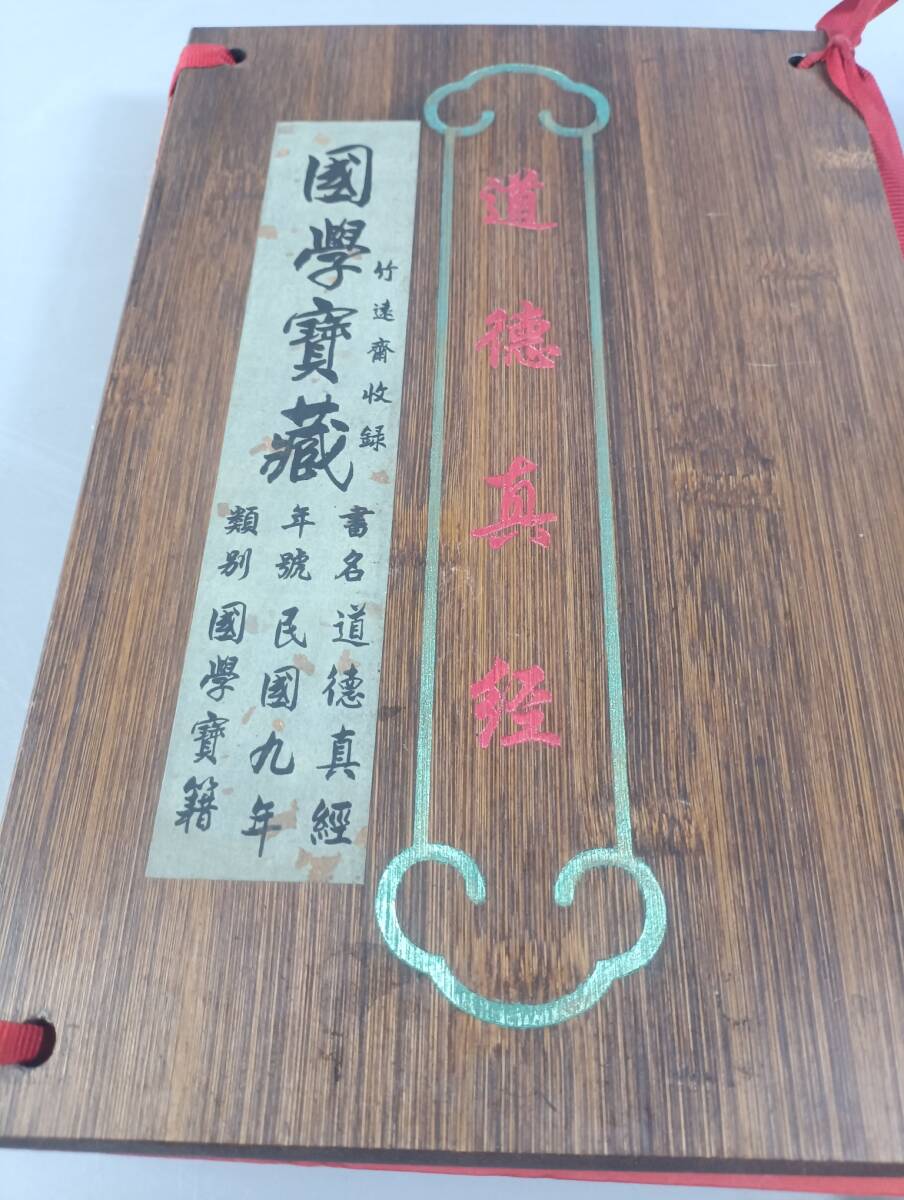 道德真经
國學寶藏
竹遠齋收録
書名 道德真經
年號 民國九年
類别 國學寶籍